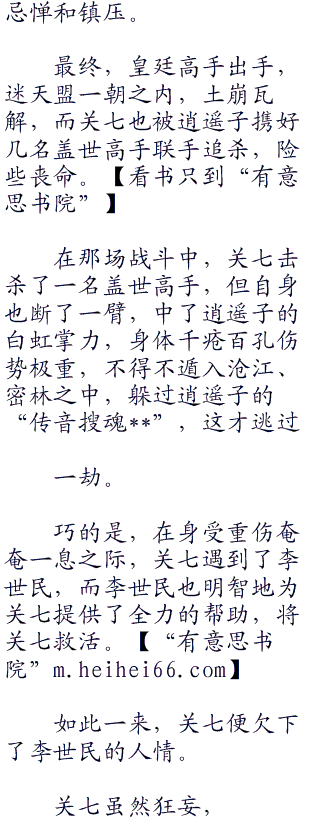 忌惮和镇压。
最终，皇廷高手出手，
迷天盟一朝之内，土崩瓦
解，而关七也被逍遥子携好
几名盖世高手联手追杀，险
些丧命。【看书只到“有意
思书院”】
在那场战斗中，关七击
杀了一名盖世高手，但自身
也断了一臂，中了逍遥子的
白虹掌力，身体千疮百孔伤
势极重，不得不遁入沧江、
密林之中，躲过逍遥子的
“传音搜魂**”，这才逃过
一劫。
巧的是，在身受重伤奄
奄一息之际，关七遇到了李
世民，而李世民也明智地为
关七提供了全力的帮助，将
关七救活。【“有意思书
院”m.heihei66.com】
如此一来，关七便欠下
了李世民的人情。
关七虽然狂妄，